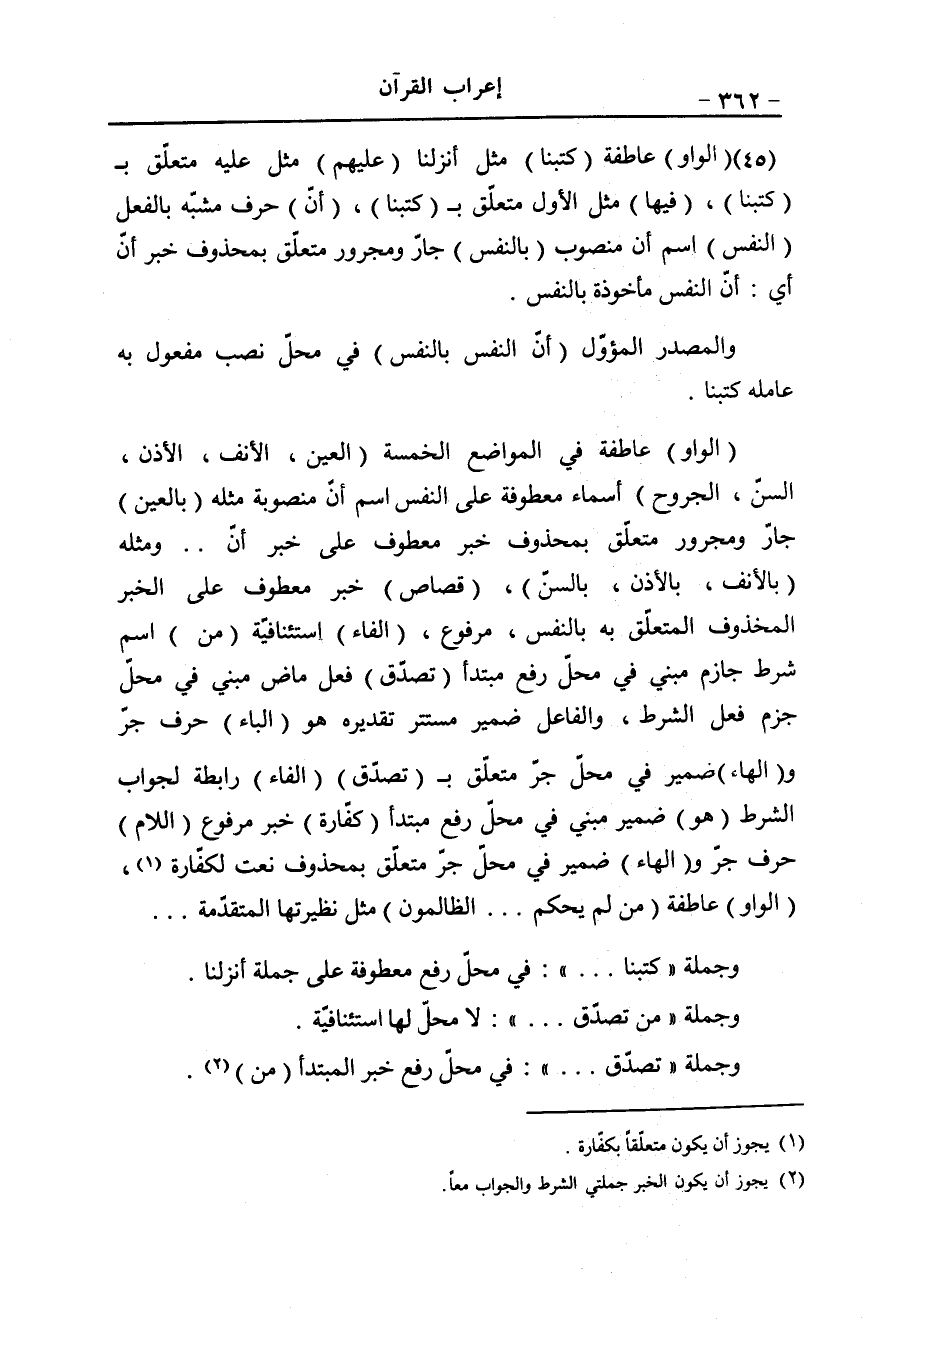 - ٣٦٢ - إعراب القرآن
(٤٥)( الواو ) عاطفة ( كتبنا ) مثل أنزلنا ( عليهم ) مثل عليه متعلّق بـ
( كتبنا ) ، ( فيها ) مثل الأول متعلّق بـ ( كتبنا ) ، ( أنّ ) حرف مشبّه بالفعل
( النفس ) اسم أن منصوب ( بالنفس ) جارّ ومجرور متعلّق بمحذوف خبر أنّ
أي : أنّ النفس مأخوذة بالنفس .
والمصدر المؤوّل ( أنّ النفس بالنفس ) في محلّ نصب مفعول به
عامله كتبنا .
( الواو ) عاطفة في المواضع الخمسة ( العين ، الأنف ، الأذن ،
السنّ ، الجروح ) أسماء معطوفة على النفس اسم أنّ منصوبة مثله ( بالعين )
جارّ ومجرور متعلّق بمحذوف خبر معطوف على خبر أنّ . . ومثله
( بالأنف ، بالأذن ، بالسنّ ) ، ( قصاص ) خبر معطوف على الخبر
المخذوف المتعلّق به بالنفس ، مرفوع ، ( الفاء ) إستئنافيّة ( من ) اسم
شرط جازم مبني في محلّ رفع مبتدأ ( تصدّق ) فعل ماض مبني في محلّ
جزم فعل الشرط ، والفاعل ضمير مستتر تقديره هو ( الباء ) حرف جرّ
و( الهاء )ضمير في محلّ جرّ متعلّق بـ ( تصدّق ) ( الفاء ) رابطة لجواب
الشرط ( هو ) ضمير مبني في محلّ رفع مبتدأ ( كفّارة ) خبر مرفوع ( اللام )
حرف جرّ و( الهاء ) ضمير في محلّ جرّ متعلّق بمحذوف نعت لكفّارة (١) ،
( الواو ) عاطفة ( من لم يحكم . . . الظالمون ) مثل نظيرتها المتقدّمة . . .
وجملة « كتبنا . . . » : في محلّ رفع معطوفة على جملة أنزلنا .
وجملة « من تصدّق . . . » : لا محلّ لها استئنافيّة .
وجملة « تصدّق . . . » : في محلّ رفع خبر المبتدأ ( من ) (٢) .
(١) يجوز أن يكون متعلّقاً بكفّارة .
(٢) يجوز أن يكون الخبر جملتي الشرط والجواب معاً .